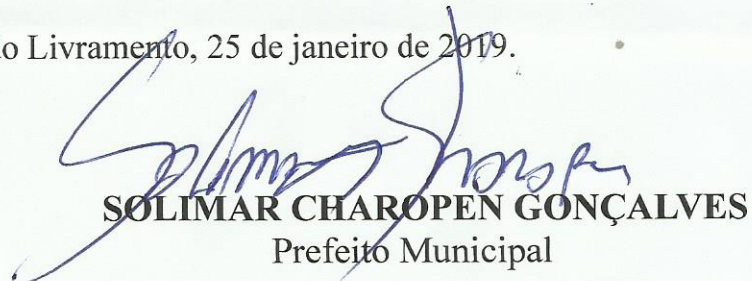 o Livramento, 25 de janeiro de 2019.
Solimar Charopen
SOLIMAR CHAROPEN GONÇALVES
Prefeito Municipal